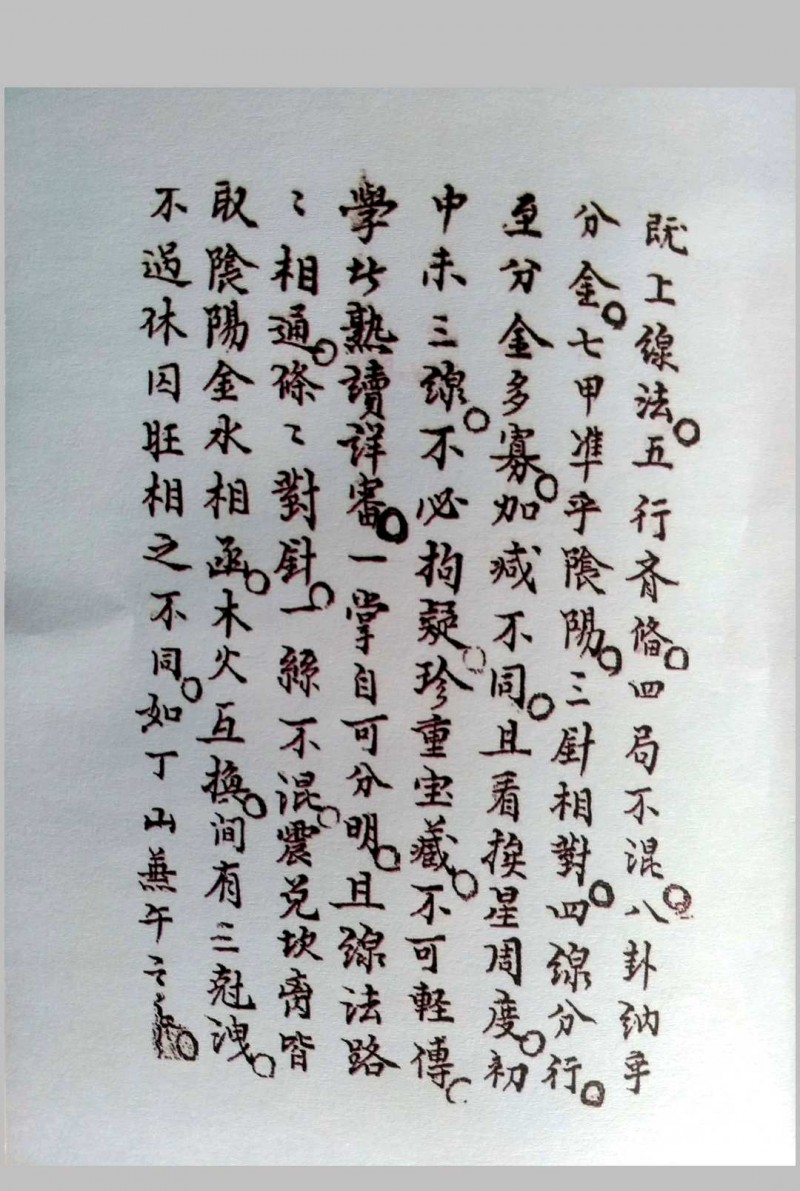 既上線法。五行齊俻。四局不混。八卦納乎
分金。七甲準乎陰陽。三針相對。四線分行。
至分金多寡。加减不同。且看換星周度。初
中未三線。不必拘疑。珍重宝藏。不可輕傳。
學此熟讀詳審。一掌自可分明。且線法路
〻相通。條〻對針。一絲不混。震兌坎离皆
取陰陽金水相函。木火互換。间有三尅洩。
不過休囚旺相之不同。如丁山蕪午